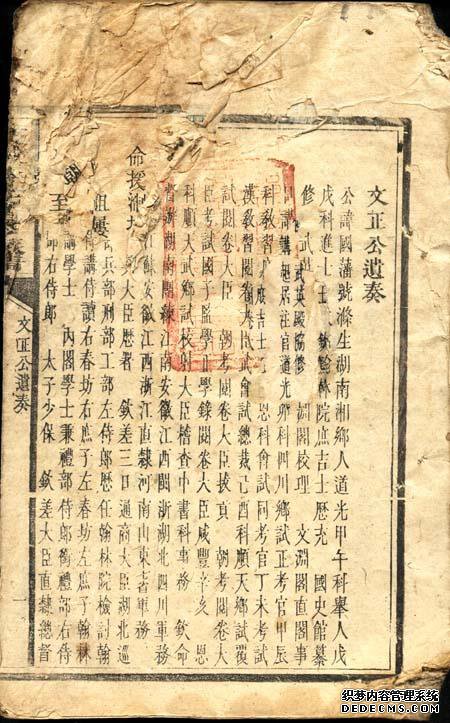 文正公遺奏
公諱國藩號滌生湖南湘鄉人道光甲午科舉人戊
戌科進士 欽點翰林院庶吉士歷充 國史館纂
修 武英殿協修 淵閣校理 文淵閣直閣事
日講起居注官道光卯科四川鄉試正考官甲辰
科教習庶吉士 恩科會試同考官丁未考試
漢教習閱卷大臣武會試總裁己酉科順天鄉試覆
試閱卷大臣 朝考閱卷大臣拔貢 朝考閱卷大
臣考試國子監學正學錄閱卷大臣咸豐辛亥 恩
科順天武鄉試校射大臣稽查中書科事務 欽命
督辦湖南團練江南安徽江西閩浙湖北四川軍務
江蘇安徽江西浙江直隸河南山東等省軍務
命授 大臣歷署 欽差三口通商大臣湖北巡
兵部刑部工部左侍郎歷任翰林院檢討翰
侍講侍讀右春坊右庶子左春坊左庶子翰林
講學士 內閣學士兼禮部侍郎銜禮部右侍
郎右侍郎 太子少保 欽差大臣直隸總督
文正公遺奏
一
织梦内容管理系统
DEDECMS.COM